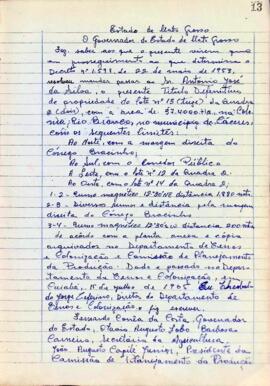 13
Estado de Mato Grosso
O Governador do Estado de Mato Grosso
Faz saber aos que o presente virem que
em prosseguimento ao que determina o
Decreto nº 1.591, de 22 de maio de 1953,
resolveu mandar passar ao Sr. Antônio José
da Silva, o presente Título Definitivo
de propriedade do lote nº 13 (treze) da Quadra
2 (dois), com a área de na Colô-
nia, Rio Branco, no município de Cáceres
com os seguintes limites:
Ao Norte, com a margem direita do
Córrego Bracinho;
Ao Sul, com o corredor Público
A Leste, com o lote nº 12 da Quadra 2.
Ao Oeste, com o lote nº 14 da Quadra 2,
1-2- Rumo magnético,
2-3- Diversos rumos e distância pela margem
direita do Córrego Bracinho
3-4- Rumo magnético distância
de acordo com a planta anexa e cópia
arquivadas no Departamento de Terras
e Colonização e Comissão de Planejamento
da Produção. Dado e passado no Depar-
tamento de Terras e Colonização, em
Cuiabá, 15 de julho de
Diretor do Departamento de
Terras e Colonização, o fiz escrever.
Fernando Corrêa da Costa, Governador
do Estado, Augusto Lobo Barbosa
Carneiro, Secretário da Agricultura,
João Augusto Capilé Junior, Presidente da
Comissão de Planejamento da Produção